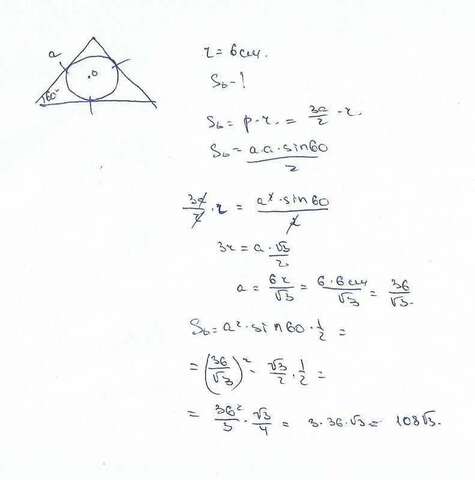 a
60°
O
r = 6 см.
S_b - !
S_b = p · r. = 3a/2 · r.
S_b = a a · sin 60 / 2
3a/2 · r = a² · sin 60 / 2
3r = a · √3/2
a = 6r/√3 = 6 · 6 см/√3 = 36/√3.
S_b = a² · sin 60 · 1/2 =
= (36/√3)² · √3/2 · 1/2 =
= 36²/3 · √3/4 = 3 · 36 · √3 = 108√3.